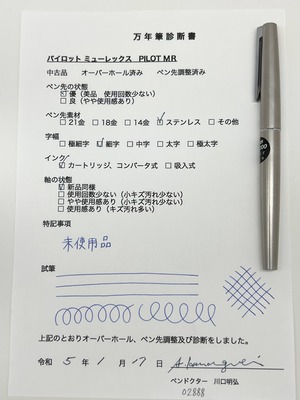 万年筆診断書
パイロット ミューレックス PILOT MR
中古品 オーバーホール済み ペン先調整済み
ペン先の状態
☑優（美品 使用回数少ない）
□良（やや使用感あり）
ペン先素材
□21金 □18金 □14金 ☑ステンレス □その他
字幅
□極細字 ☑細字 □中字 □太字 □極太字
インク
☑カートリッジ、コンバータ式 □吸入式
軸の状態
☑新品同様
□使用回数少ない（小キズ汚れ少ない）
□やや使用感あり（小キズ汚れ少ない）
□使用感あり（キズ汚れ多い）
特記事項
未使用品
試筆
上記のとおりオーバーホール、ペン先調整及び診断をしました。
令和 5年 1月 17日
ペンドクター 川口明弘
02888